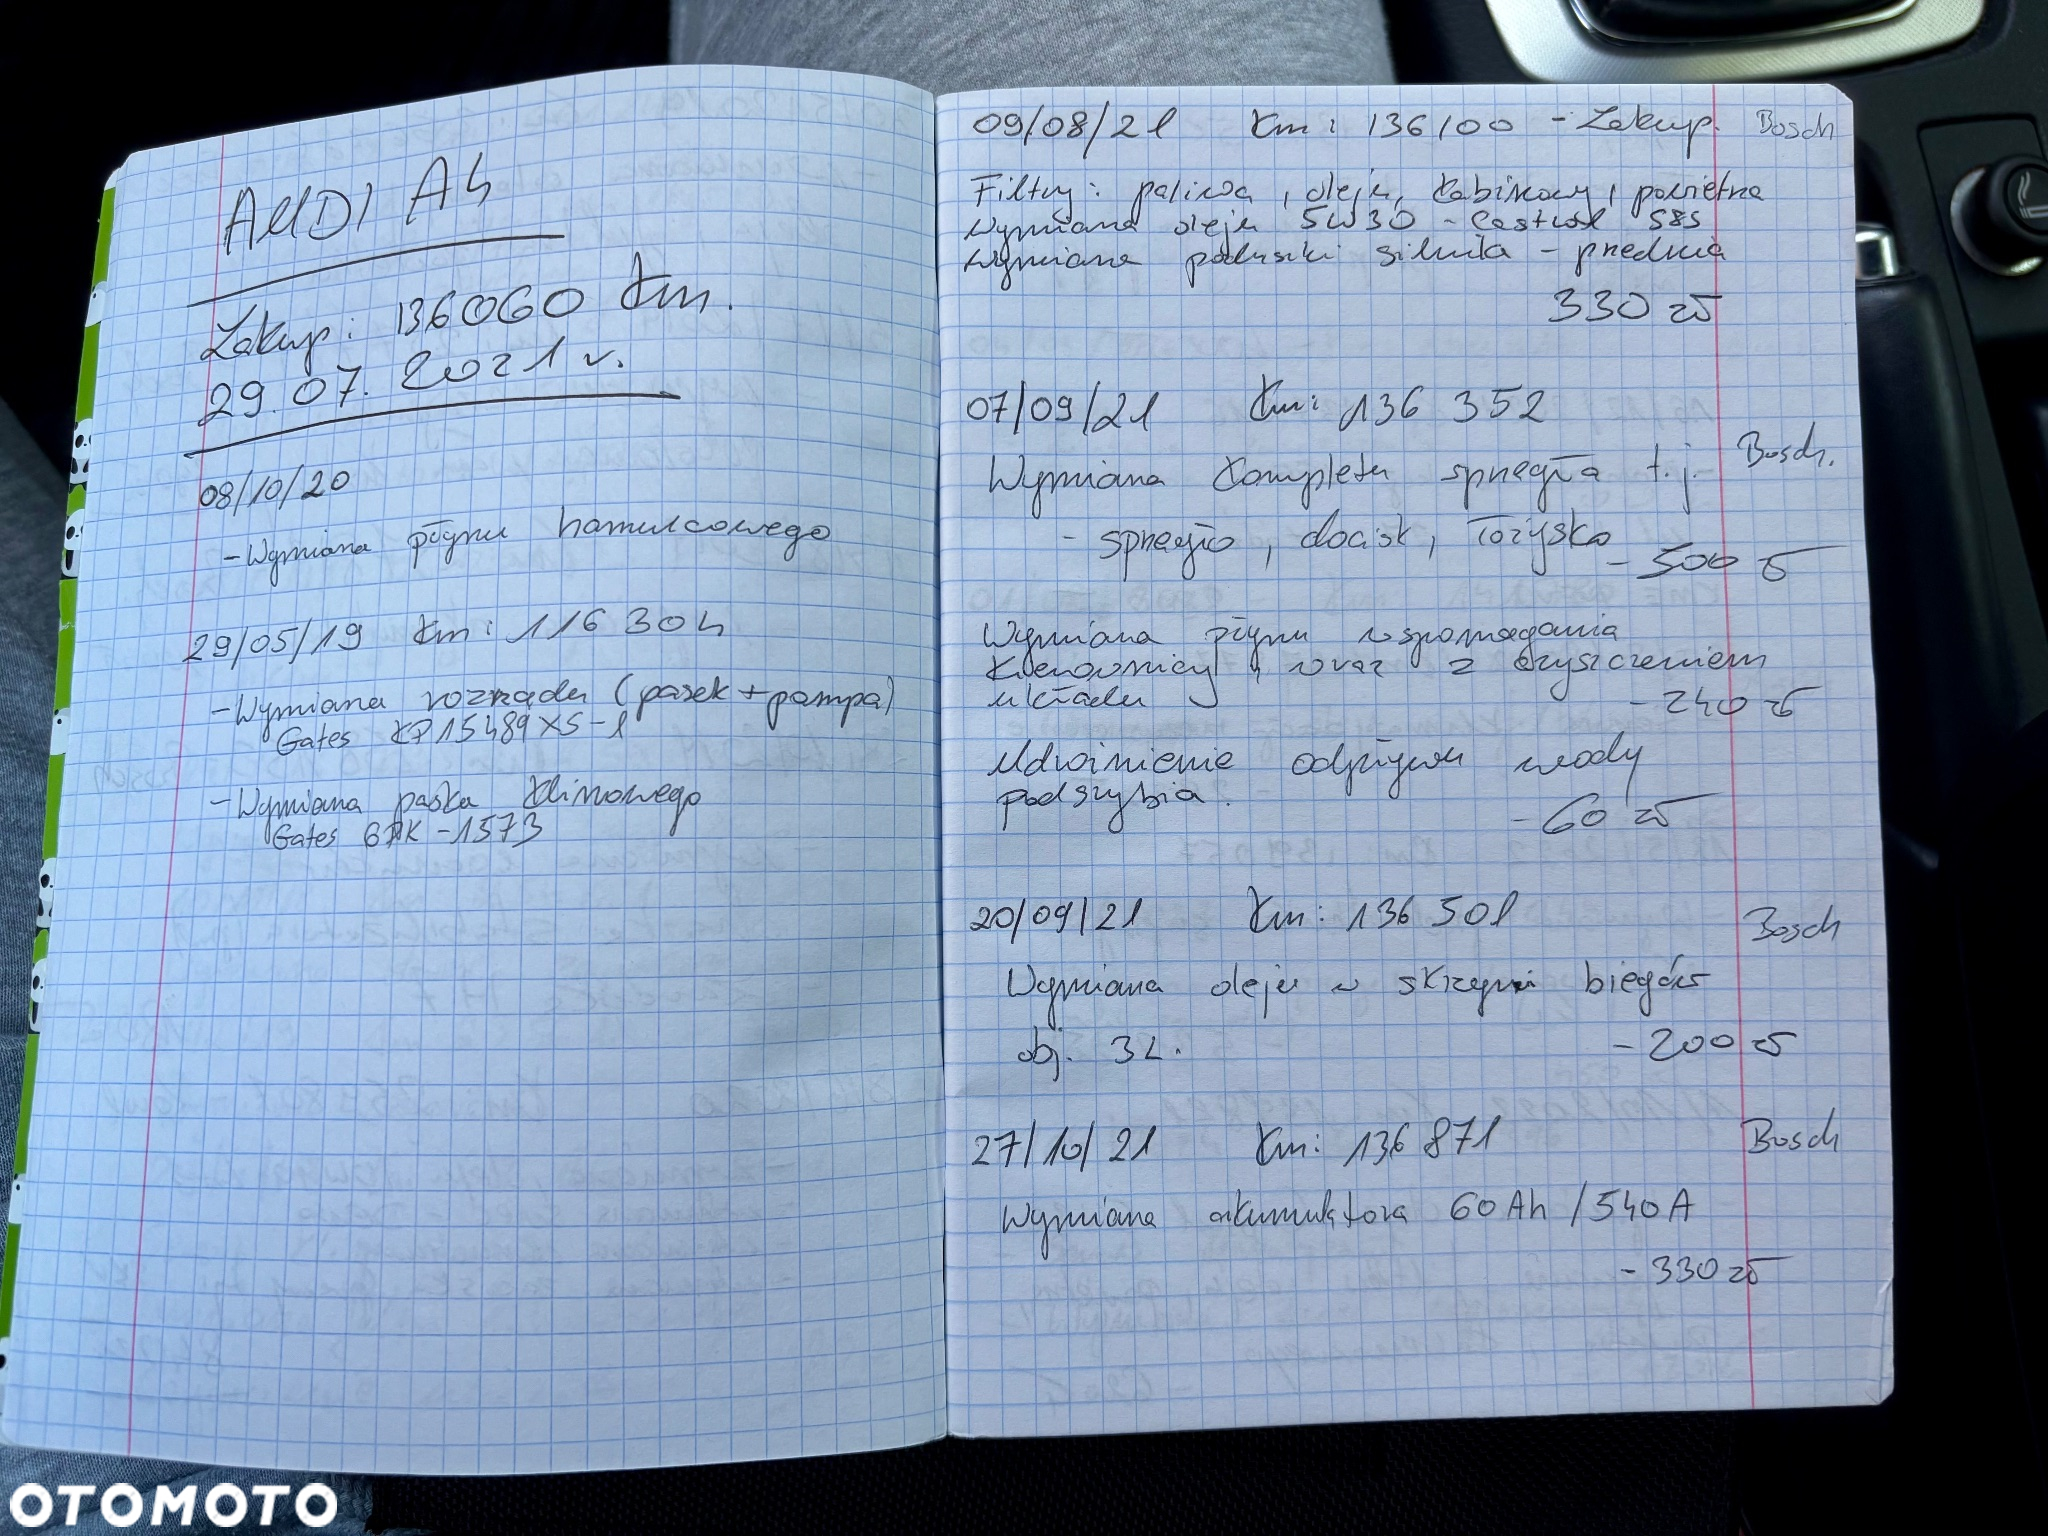 AUDI A4
Zakup: 136060 km.
29.07.2021 r.
08/10/20
- Wymiana płynu hamulcowego
29/05/19 km: 116 304
- Wymiana rozrządu (pasek + pompa)
Gates KP15489XS-1
- Wymiana paska klinowego
Gates 6PK - 1573
09/08/21 km: 136100 - Zakup. Bosch
Filtry: paliwa, oleju, kabinowy, powietrza
Wymiana oleju 5W30 - Castrol 585
Wymiana poduszki silnika - przednia
330 zł
07/09/21 km: 136 352
Wymiana kompletu sprzęgła t.j. Bosch.
- sprzęgło, docisk, łożysko
- 500 zł
Wymiana płynu wspomagania
kierownicy, wraz z czyszczeniem
układu - 240 zł
Udrożnienie odpływu wody
podszybia.
- 60 zł
20/09/21 km: 136 501 Bosch
Wymiana oleju w skrzyni biegów
obj. 3L. - 200 zł
27/10/21 km: 136 871 Bosch
Wymiana akumulatora 60Ah /540A
- 330 zł
OTOMOTO